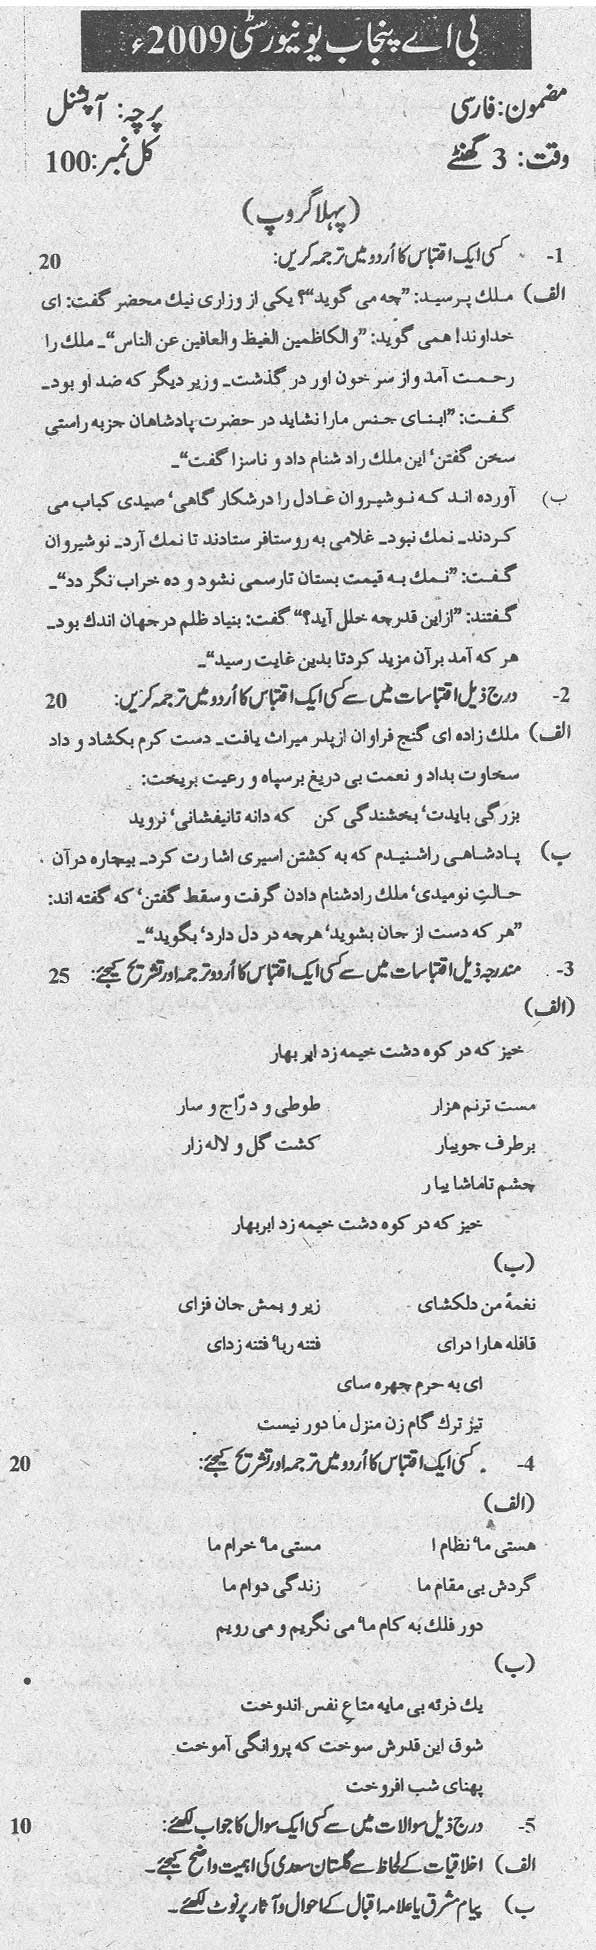 بی اے پنجاب یونیورسٹی 2009ء
مضمون: فارسی پرچہ: آپشنل
وقت: 3 گھنٹے کل نمبر: 100
(پہلا گروپ)
1- کسی ایک اقتباس کا اُردو میں ترجمہ کریں: 20
الف) ملك پرسید: ”چه می گوید“؟ یکی از وزاری نیك محضر گفت: ای
خداوند! همی گوید: ”والکاظمین الغیظ والعافین عن الناس“۔ ملك را
رحمت آمد و از سر خون اور در گذشت۔ وزیر دیگر که ضد او بود۔
گفت: ”ابنای جنس مارا نشاید در حضرت پادشاهان جزبه راستی
سخن گفتن‘ این ملك راد شنام داد و ناسزا گفت“۔
ب) آورده اند که نوشیروان عادل را درشکار گاهی‘ صیدی کباب می
کردند۔ نمك نبود۔ غلامی به روستافر ستادند تا نمك آرد۔ نوشیروان
گفت: ”نمك به قیمت بستان تارسمی نشود و ده خراب نگر دد“۔
گفتند: ”ازاین قدرچه خلل آید؟“ گفت: بنیاد ظلم درجهان اندك بود۔
هر که آمد برآن مزید کردتا بدین غایت رسید“۔
2- درج ذیل اقتباسات میں سے کسی ایک اقتباس کا اُردو میں ترجمہ کریں: 20
الف) ملك زاده ای گنج فراوان ازپدر میراث یافت۔ دست کرم بکشاد و داد
سخاوت بداد و نعمت بی دریغ برسپاه و رعیت بریخت:
بزرگی بایدت‘ بخشندگی کن که دانه تانیفشانی‘ نروید
ب) پادشاهی راشنیدم که به کشتن اسیری اشارت کرد۔ بیچاره درآن
حالتِ نومیدی‘ ملك رادشنام دادن گرفت و سقط گفتن‘ که گفته اند:
”هر که دست از جان بشوید‘ هرچه در دل دارد‘ بگوید“۔
3- مندرجہ ذیل اقتباسات میں سے کسی ایک اقتباس کا اُردو ترجمہ اور تشریح کیجئے: 25
(الف)
خیز که در کوه دشت خیمه زد ابر بهار
مست ترنم هزار طوطی و درّاج و سار
برطرف جویبار کشت گل و لاله زار
چشم تماشا بیار
خیز که در کوه دشت خیمه زد ابربهار
(ب)
نغمهٔ من دلکشای زیر و بمش جان فزای
قافله هارا درای فتنه ربا‘ فتنه زدای
ای به حرم چهره سای
تیز ترك گام زن منزل ما دور نیست
4- کسی ایک اقتباس کا اُردو میں ترجمہ اور تشریح کیجئے: 20
(الف)
هستی ما‘ نظام ا مستی ما‘ خرام ما
گردش بی مقام ما زندگی دوام ما
دور فلك به کام ما‘ می نگریم و می رویم
(ب)
یك ذرئه بی مایه متاعِ نفس اندوخت
شوق این قدرش سوخت که پروانگی آموخت
پهنای شب افروخت
5- درج ذیل سوالات میں سے کسی ایک سوال کا جواب لکھئے: 10
الف) اخلاقیات کے لحاظ سے گلستان سعدی کی اہمیت واضح کیجئے۔
ب) پیام مشرق یا علامہ اقبال کے احوال و آثار پر نوٹ لکھئے۔